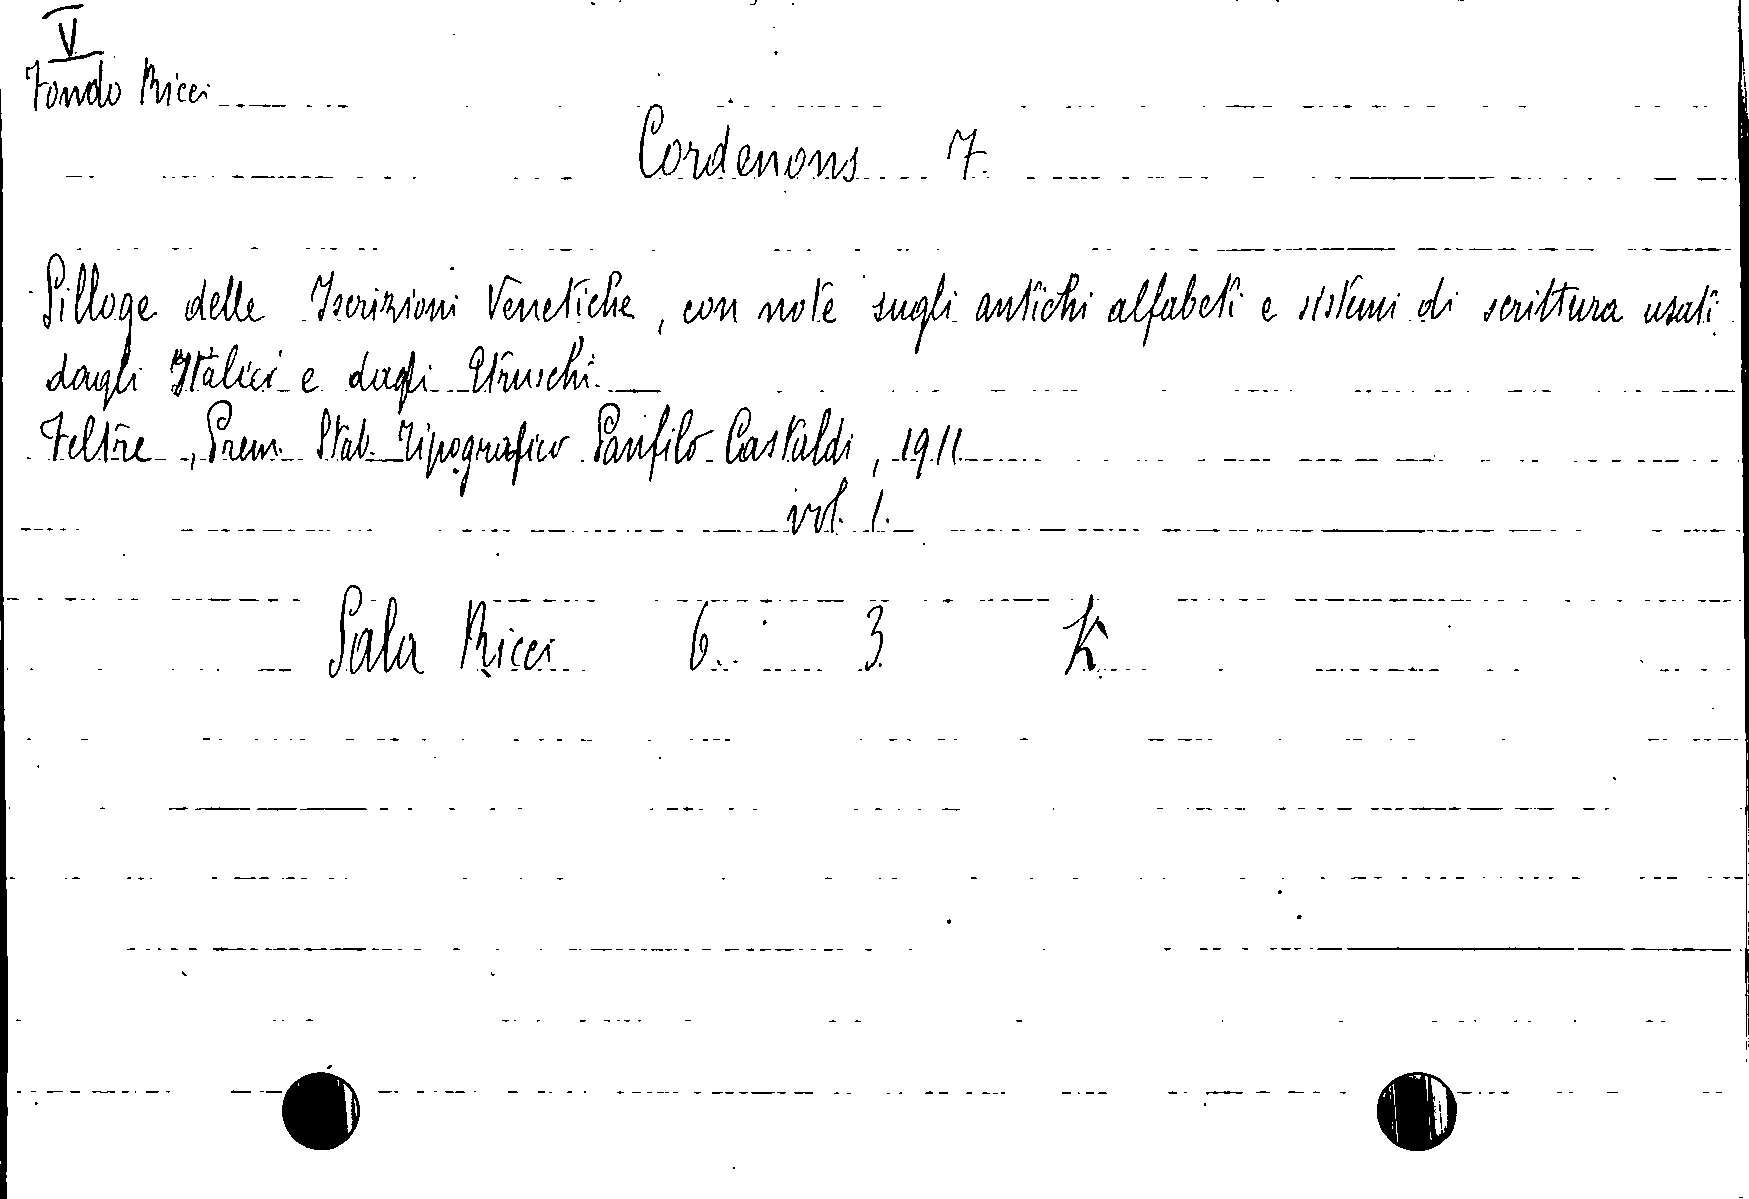 V
Fondo Ricci
Cordenons F.
Silloge delle Iscrizioni Venetiche, con note sugli antichi alfabeti e sistemi di scrittura usati
dagli Italici e dagli Etruschi.
Feltre, Prem. Stab. Tipografico Panfilo Castaldi, 1911
vol. 1.
Sala Ricci 6 3 K